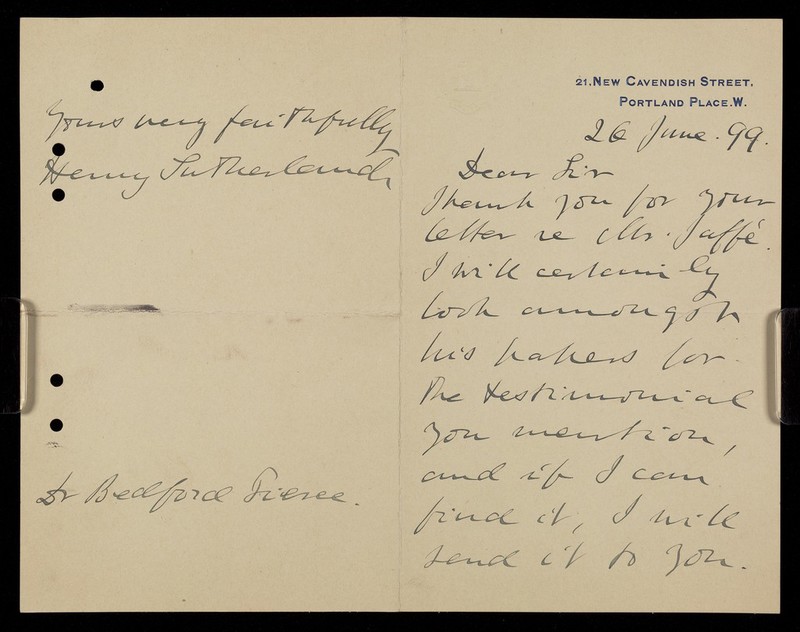 21. NEW CAVENDISH STREET,
PORTLAND PLACE. W.
26 June. 99.
Dear Sir
Thank you for your
letter re Mr. Jaffé.
I will certainly
look amongst
his papers for
the testimonial
you mention,
and if I can
find it, I will
send it to you.
Yours very faithfully
Henry Sutherland
Dr Bedford Pierce.